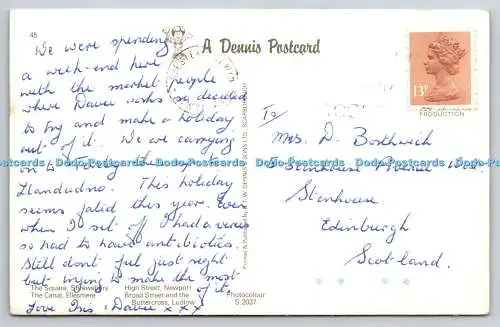 48
A Dennis Postcard
We were spending
a week-end here
with the market people
where Davie works so decided
to try and make a holiday
out of it. We are carrying
on to
Llandudno. This holiday
seems fated this year. Even
when I set off I had a virus
so had to have antibiotics.
Still don't feel just right
but trying to make the most
of it.
Love Ims, Davie x x x
The Square, Shrewsbury
The Canal, Ellesmere
High Street, Newport
Broad Street and the
Buttercross, Ludlow
Photocolour
S.2037
13P
PRODUCTION
To/
Mrs. D. Borthwick
Stenhouse
Edinburgh
Scotland.
Dodo-Postcards Dodo-Postcards Dodo-Postcards Dodo-Postcards